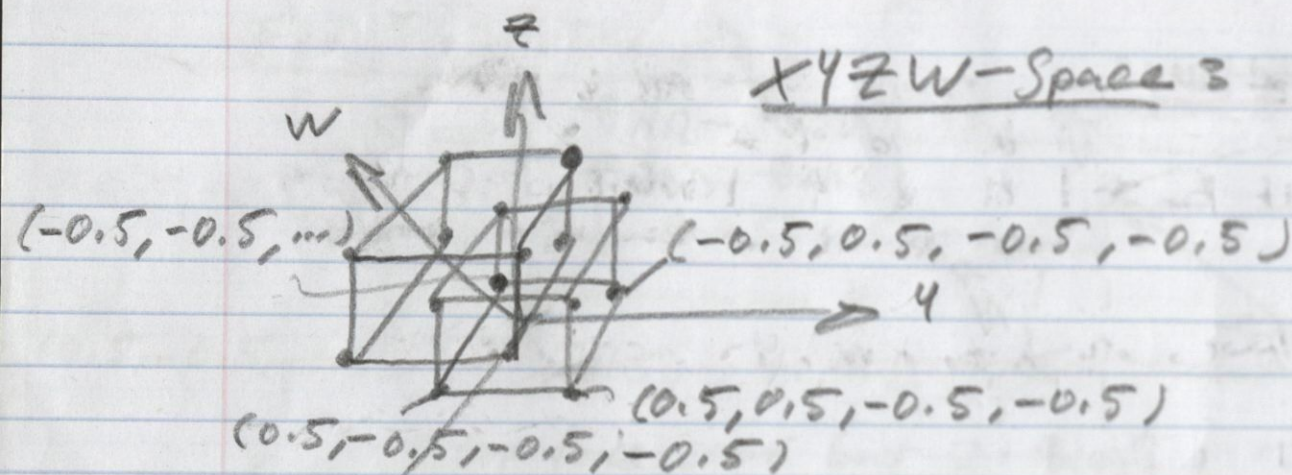 Z
XYZW-Space:
W
(-0.5,-0.5,...)
(-0.5,0.5,-0.5,-0.5)
Y
(0.5,0.5,-0.5,-0.5)
(0.5,-0.5,-0.5,-0.5)